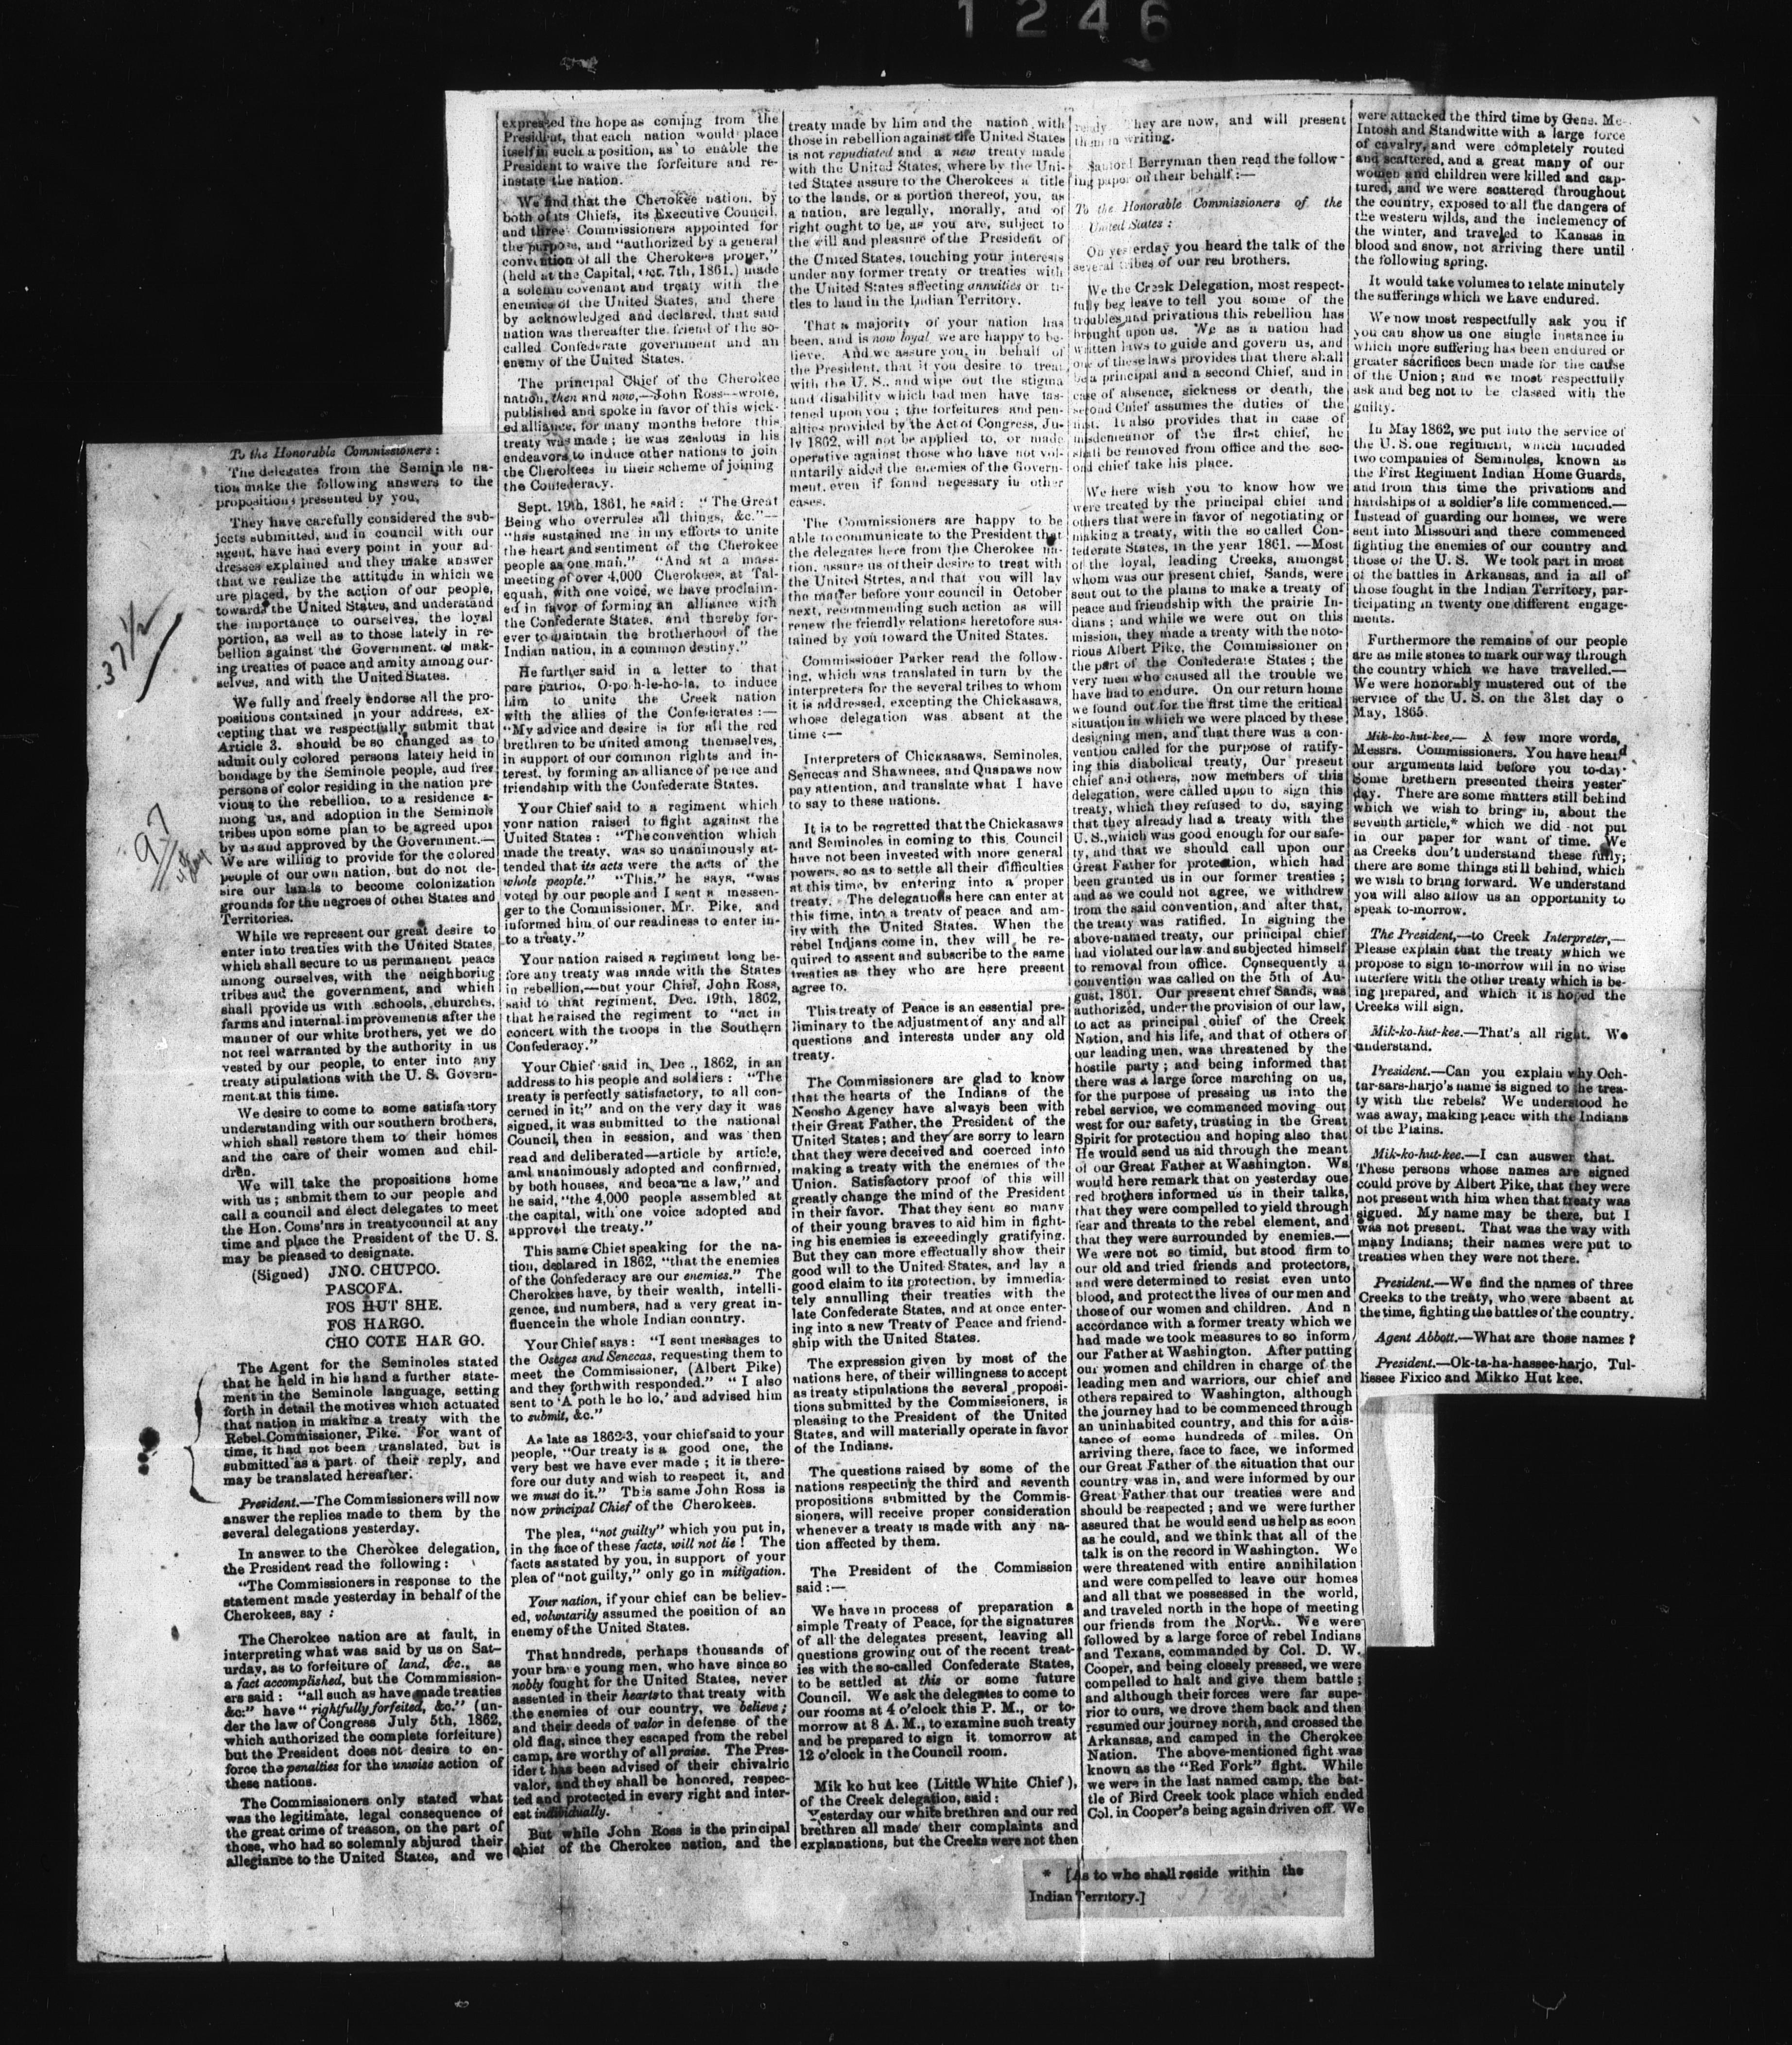 1246
.37½
97
To the Honorable Commissioners:
The delegates from the Seminole na-
tion make the following answers to the
propositions presented by you,
They have carefully considered the sub-
jects submitted, and in council with our
agent, have had every point in your ad-
dresses explained and they make answer
that we realize the attitude in which we
are placed, by the action of our people,
towards the United States, and understand
the importance to ourselves, the loyal
portion, as well as to those lately in re-
bellion against the Government, of mak-
ing treaties of peace and amity among our-
selves, and with the United States.
We fully and freely endorse all the pro-
positions contained in your address, ex-
cepting that we respectfully submit that
Article 3. should be so changed as to
admit only colored persons lately held in
bondage by the Seminole people, and free
persons of color residing in the nation pre-
vious to the rebellion, to a residence a-
mong us, and adoption in the Seminole
tribes upon some plan to be agreed upon
by us and approved by the Government.—
We are willing to provide for the colored
people of our own nation, but do not de-
sire our lands to become colonization
grounds for the negroes of other States and
Territories.
While we represent our great desire to
enter into treaties with the United States,
which shall secure to us permanent peace
among ourselves, with the neighboring
tribes and the government, and which
shall provide us with schools, churches,
farms and internal improvements after the
manner of our white brothers, yet we do
not feel warranted by the authority in us
vested by our people, to enter into any
treaty stipulations with the U. S. Govern-
ment at this time.
We desire to come to some satisfactory
understanding with our southern brothers,
which shall restore them to their homes
and the care of their women and chil-
dren.
We will take the propositions home
with us; submit them to our people and
call a council and elect delegates to meet
the Hon. Coms'nrs in treaty council at any
time and place the President of the U. S.
may be pleased to designate.
(Signed) JNO. CHUPCO.
PASCOFA.
FOS HUT SHE.
FOS HARGO.
CHO COTE HAR GO.
The Agent for the Seminoles stated
that he held in his hand a further state-
ment in the Seminole language, setting
forth in detail the motives which actuated
that nation in making a treaty with the
Rebel Commissioner, Pike. For want of
time, it had not been translated, but is
submitted as a part of their reply, and
may be translated hereafter.
President.—The Commissioners will now
answer the replies made to them by the
several delegations yesterday.
In answer to the Cherokee delegation,
the President read the following:
"The Commissioners in response to the
statement made yesterday in behalf of the
Cherokees, say:
The Cherokee nation are at fault, in
interpreting what was said by us on Sat-
urday, as to forfeiture of land, &c., as
a fact accomplished, but the Commmission-
ers said: "all such as have made treaties
&c." have "rightfully forfeited, &c." (un-
der the law of Congress July 5th, 1862,
which authorized the complete forfeiture)
but the President does not desire to en-
force the penalties for the unwise action of
these nations.
The Commissioners only stated what
was the legitimate, legal consequence of
the great crime of treason, on the part of
those, who had so solemnly abjured their
allegiance to the United States, and we
expressed the hope as coming from the
President, that each nation would place
itself in such a position, as to enable the
President to waive the forfeiture and re-
instate the nation.
We find that the Cherokee nation, by
both of its Chiefs, its Executive Council,
and three Commissioners appointed for
the purpose, and "authorized by a general
convention of all the Cherokees proper,"
(held at the Capital, Oct. 7th, 1861.) made
a solemn covenant and treaty with the
enemies of the United States, and there
by acknowledged and declared, that said
nation was thereafter the friend of the so-
called Confederate government and an
enemy of the United States.
The principal Chief of the Cherokee
nation, then and now,—John Ross—wrote,
published and spoke in favor of this wick-
ed alliance, for many months before this
treaty was made; he was zealous in his
endeavors to induce other nations to join
the Cherokees in their scheme of joining
the Confederacy.
Sept. 19th, 1861, he said: "The Great
Being who overrules all things, &c."—
"has sustained me in my efforts to unite
the heart and sentiment of the Cherokee
people as one man." "And at a mass-
meeting of over 4,000 Cherokees, at Tal-
equah, with one voice, we have proclaim-
ed in favor of forming an alliance with
the Confederate States, and thereby for-
ever to maintain the brotherhood of the
Indian nation, in a common destiny."
He further said in a letter to that
pure patriot, O-po h-le-ho-la, to induce
him to unite the Creek nation
with the allies of the Confederates:—
"My advice and desire is for all the red
brethren to be united among themselves,
in support of our common rights and in-
terest, by forming an alliance of peace and
friendship with the Confederate States.
Your Chief said to a regiment which
your nation raised to fight against the
United States: "The convention which
made the treaty, was so unanimously at-
tended that its acts were the acts of the
whole people." "This," he says, "was
voted by our people and I sent a messen-
ger to the Commissioner, Mr. Pike, and
informed him of our readiness to enter in-
to a treaty."
Your nation raised a regiment long be-
fore any treaty was made with the States
in rebellion,—but your Chief, John Ross,
said to that regiment, Dec. 19th, 1862,
that he raised the regiment to "act in
concert with the troops in the Southern
Confederacy."
Your Chief said in Dec., 1862, in an
address to his people and soldiers: "The
treaty is perfectly satisfactory, to all con-
cerned in it;" and on the very day it was
signed, it was submitted to the national
Council, then in session, and was then
read and deliberated—article by article,
and unanimously adopted and confirmed,
by both houses, and became a law," and
he said, "the 4,000 people assembled at
the capital, with one voice adopted and
approved the treaty."
This same Chief speaking for the na-
tion, declared in 1862, "that the enemies
of the Confederacy are our enemies." The
Cherokees have, by their wealth, intelli-
gence, and numbers, had a very great in-
fluence in the whole Indian country.
Your Chief says: "I sent messages to
the Osages and Senecas, requesting them to
meet the Commissioner, (Albert Pike)
and they forthwith responded." "I also
sent to 'A poth le ho lo,' and advised him
to submit, &c."
As late as 1862-3, your chief said to your
people, "Our treaty is a good one, the
very best we have ever made; it is there-
fore our duty and wish to respect it, and
we must do it." This same John Ross is
now principal Chief of the Cherokees.
The plea, "not guilty" which you put in,
in the face of these facts, will not lie! The
facts as stated by you, in support of your
plea of "not guilty," only go in mitigation.
Your nation, if your chief can be believ-
ed, voluntarily assumed the position of an
enemy of the United States.
That hnndreds, perhaps thousands of
your brave young men, who have since so
nobly fought for the United States, never
assented in their hearts to that treaty with
the enemies of our country, we believe;
and their deeds of valor in defense of the
old flag, since they escaped from the rebel
camp, are worthy of all praise. The Pres-
ident has been advised of their chivalric
valor, and they shall be honored, respec-
ted and protected in every right and inter-
est individually.
But while John Ross is the principal
chief of the Cherokee nation, and the
treaty made by him and the nation, with
those in rebellion against the United States
is not repudiated and a new treaty made
with the United States, where by the Uni-
ted States assure to the Cherokees a title
to the lands, or a portion thereof, you, as
a nation, are legally, morally, and of
right ought to be, as you are, subject to
the will and pleasure of the President of
the United States, touching your interests
under any former treaty or treaties with
the United States affecting annuities or ti-
tles to land in the Indian Territory.
That a majority of your nation has
been, and is now loyal we are happy to be-
lieve. And we assure you, in behalf of
the President, that if you desire to treat
with the U. S., and wipe out the stigma
and disability which bad men have fas-
tened upon you; the forfeitures and pen-
alties provided by the Act of Congress, Ju-
ly 1862, will not be applied to, or made
operative against those who have not vol-
untarily aided the enemies of the Govern-
ment, even if found necessary in other
cases.
The Commissioners are happy to be
able to communicate to the President that
the delegates here from the Cherokee na-
tion, assure us of their desire to treat with
the United Strtes, and that you will lay
the matter before your council in October
next, recommending such action as will
renew the friendly relations heretofore sus-
tained by you toward the United States.
Commissioner Parker read the follow-
ing, which was translated in turn by the
interpreters for the several tribes to whom
it is addressed, excepting the Chickasaws,
whose delegation was absent at the
time:—
Interpreters of Chickasaws, Seminoles,
Senecas and Shawnees, and Quapaws now
pay attention, and translate what I have
to say to these nations.
It is to be regretted that the Chickasaws
and Seminoles in coming to this Council
have not been invested with more general
powers, so as to settle all their difficulties
at this time, by entering into a proper
treaty. The delegations here can enter at
this time, into a treaty of peace and am-
ity with the United States. When the
rebel Indians come in, they will be re-
quired to assent and subscribe to the same
treaties as they who are here present
agree to.
This treaty of Peace is an essential pre-
liminary to the adjustment of any and all
questions and interests under any old
treaty.
The Commissioners are glad to know
that the hearts of the Indians of the
Neosho Agency have always been with
their Great Father, the President of the
United States; and they are sorry to learn
that they were deceived and coerced into
making a treaty with the enemies of the
Union. Satisfactory proof of this will
greatly change the mind of the President
in their favor. That they sent so many
of their young braves to aid him in fight-
ing his enemies is exceedingly gratifying.
But they can more effectually show their
good will to the United States, and lay a
good claim to its protection, by immedia-
tely annulling their treaties with the
late Confederate States, and at once enter-
ing into a new Treaty of Peace and friend-
ship with the United States.
The expression given by most of the
nations here, of their willingness to accept
as treaty stipulations the several proposi-
tions submitted by the Commissioners, is
pleasing to the President of the United
States, and will materially operate in favor
of the Indians.
The questions raised by some of the
nations respecting the third and seventh
propositions submitted by the Commis-
sioners, will receive proper consideration
whenever a treaty is made with any na-
tion affected by them.
The President of the Commission
said:—
We have in process of preparation a
simple Treaty of Peace, for the signatures
of all the delegates present, leaving all
questions growing out of the recent treat-
ies with the so-called Confederate States,
to be settled at this or some future
Council. We ask the delegates to come to
our rooms at 4 o'clock this P. M., or to-
morrow at 8 A. M., to examine such treaty
and be prepared to sign it tomorrow at
12 o'clock in the Council room.
Mik ko hut kee (Little White Chief),
of the Creek delegation, said:
Yesterday our white brethren and our red
brethren all made their complaints and
explanations, but the Creeks were not then
ready They are now, and will present
them in writing.
Sanford Berryman then read the follow-
ing paper on their behalf:—
To the Honorable Commissioners of the
United States:
On yesterday you heard the talk of the
several tribes of our red brothers.
We the Creek Delegation, most respect-
fully beg leave to tell you some of the
troubles and privations this rebellion has
brought upon us. We as a nation had
written laws to guide and govern us, and
one of these laws provides that there shall
be a principal and a second Chief, and in
case of absence, sickness or death, the
second Chief assumes the duties of the
first. It also provides that in case of
misdemeanor of the first chief, he
shall be removed from office and the sec-
ond chief take his place.
We here wish you to know how we
were treated by the principal chief and
others that were in favor of negotiating or
making a treaty, with the so called Con-
federate States, in the year 1861.—Most
of the loyal, leading Creeks, amongst
whom was our present chief, Sands, were
sent out to the plains to make a treaty of
peace and friendship with the prairie In-
dians; and while we were out on this
mission, they made a treaty with the noto-
rious Albert Pike, the Commissioner on
the part of the Confederate States; the
very men who caused all the trouble we
have had to endure. On our return home
we found out for the first time the critical
situation in which we were placed by these
designing men, and that there was a con-
vention called for the purpose of ratify-
ing this diabolical treaty, Our present
chief and others, now members of this
delegation, were called upon to sign this
treaty, which they refused to do, saying
that they already had a treaty with the
U. S., which was good enough for our safe-
ty, and that we should call upon our
Great Father for protection, which had
been granted us in our former treaties;
and as we could not agree, we withdrew
from the said convention, and after that,
the treaty was ratified. In signing the
above-named treaty, our principal chief
had violated our law and subjected himself
to removal from office. Consequently a
convention was called on the 5th of Au-
gust, 1861. Our present chief Sands, was
authorized, under the provision of our law,
to act as principal chief of the Creek
Nation, and his life, and that of others of
our leading men, was threatened by the
hostile party; and being informed that
there was a large force marching on us,
for the purpose of pressing us into the
rebel service, we commenced moving out
west for our safety, trusting in the Great
Spirit for protection and hoping also that
He would send us aid through the meant
of our Great Father at Washington. We
would here remark that on yesterday oue
red brothers informed us in their talks,
that they were compelled to yield through
fear and threats to the rebel element, and
that they were surrounded by enemies.—
We were not so timid, but stood firm to
our old and tried friends and protectors,
and were determined to resist even unto
blood, and protect the lives of our men and
those of our women and children. And n
accordance with a former treaty which we
had made we took measures to so inform
our Father at Washington. After putting
our women and children in charge of the
leading men and warriors, our chief and
others repaired to Washington, although
the journey had to be commenced through
an uninhabited country, and this for a dis-
tance of some hundreds of miles. On
arriving there, face to face, we informed
our Great Father of the situation that our
country was in, and were informed by our
Great Father that our treaties were and
should be respected; and we were further
assured that he would send us help as soon
as he could, and we think that all of the
talk is on the record in Washington. We
were threatened with entire annihilation
and were compelled to leave our homes
and all that we possessed in the world,
and traveled north in the hope of meeting
our friends from the North. We were
followed by a large force of rebel Indians
and Texans, commanded by Col. D. W.
Cooper, and being closely pressed, we were
compelled to halt and give them battle;
and although their forces were far supe-
rior to ours, we drove them back and then
resumed our journey north, and crossed the
Arkansas, and camped in the Cherokee
Nation. The above-mentioned fight was
known as the "Red Fork" fight. While
we were in the last named camp, the bat-
tle of Bird Creek took place which ended
Col. in Cooper's being again driven off. We
* [As to who shall reside within the
Indian Territory.]
were attacked the third time by Gens. Mc-
Intosh and Standwitte with a large force
of cavalry, and were completely routed
and scattered, and a great many of our
women and children were killed and cap-
tured, and we were scattered throughout
the country, exposed to all the dangers of
the western wilds, and the inclemency of
the winter, and traveled to Kansas in
blood and snow, not arriving there until
the following spring.
It would take volumes to relate minutely
the sufferings which we have endured.
We now most respectfully ask you if
you can show us one single instance in
which more suffering has been endured or
greater sacrifices been made for the cause
of the Union; and we most respectfully
ask and beg not to be classed with the
guilty.
In May 1862, we put into the service of
the U. S. one regiment, which included
two companies of Seminoles, known as
the First Regiment Indian Home Guards,
and from this time the privations and
hardships of a soldier's life commenced.—
Instead of guarding our homes, we were
sent into Missouri and there commenced
fighting the enemies of our country and
those of the U. S. We took part in most
of the battles in Arkansas, and in all of
those fought in the Indian Territory, par-
ticipating in twenty one different engage-
ments.
Furthermore the remains of our people
are as mile stones to mark our way through
the country which we have travelled.—
We were honorably mustered out of the
service of the U. S. on the 31st day o
May, 1865.
Mik-ko-hut-kee.— A few more words,
Messrs. Commissioners. You have heard
our arguments laid before you to-day
Some brethern presented theirs yester
day. There are some matters still behind
which we wish to bring in, about the
seventh article,* which we did not put
in our paper for want of time. We
as Creeks don't understand these fully;
there are some things still behind, which
we wish to bring forward. We understand
you will also allow us an opportunity to
speak to-morrow.
The President,—to Creek Interpreter,—
Please explain that the treaty which we
propose to sign to-morrow will in no wise
interfere with the other treaty which is be-
ing prepared, and which it is hoped the
Creeks will sign.
Mik-ko-hut-kee.—That's all right. We
understand.
President.—Can you explain why Och-
tar-sars-harjo's name is signed to the trea-
ty with the rebels? We understood he
was away, making peace with the Indians
of the Plains.
Mik-ko-hut-kee.—I can answer that.
These persons whose names are signed
could prove by Albert Pike, that they were
not present with him when that treaty was
signed. My name may be there, but I
was not present. That was the way with
many Indians; their names were put to
treaties when they were not there.
President.—We find the names of three
Creeks to the treaty, who were absent at
the time, fighting the battles of the country.
Agent Abbott.—What are those names?
President.—Ok-ta-ha-hassee-harjo, Tul-
lissee Fixico and Mikko Hut kee.